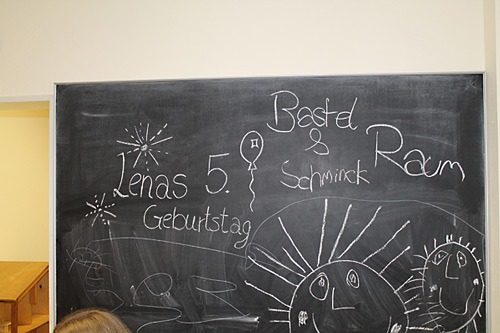 Lenas 5.
Geburtstag
Bastel
&
Schminck
Raum